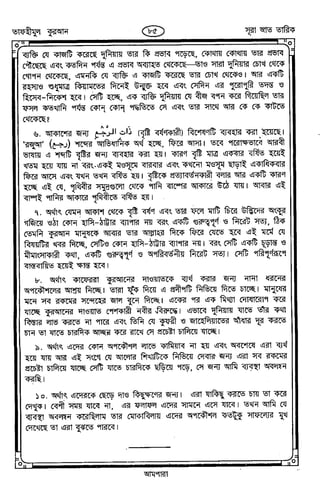 তাফহীমুল কুরআন ৮৫ সূরা আত তারিক
ব্যক্তি যে কাজটি করেছে দুনিয়ায় তার কি প্রভাব পড়েছে, কোথায় কোথায় তার প্রভাব
পৌছেছে এবং কতদিন পর্যন্ত এ প্রভাব অব্যাহত থেকেছে—তাও সারা দুনিয়ার চোখ থেকে
গোপন থেকেছে, এমনকি যে ব্যক্তি এ কাজটি করেছে তার চোখ থেকেও। আর একটি
রহস্যও শুধুমাত্র কিয়ামতের দিনেই উন্মুক্ত হবে এবং সেদিন এর পুরোপুরি তদন্ত ও
হিসেব-নিকেশ হবে। সেটি হচ্ছে, এক ব্যক্তি দুনিয়ায় যে বীজ বপন করে গিয়েছিল তার
ফসল কতদিন পর্যন্ত কোন্ কোন্ পদ্ধতিতে সে এবং তার সাথে আর কে কে কাটতে
থেকেছে।
৬. আকাশের জন্য ذات الرجع (বৃষ্টি বর্ষণকারী) বিশেষণটি ব্যবহার করা হয়েছে।
'রজআ' (رجع) শব্দের আভিধানিক অর্থ হচ্ছে, ফিরে আসা। তবে পরোক্ষভাবে আরবী
ভাষায় এ শব্দটি বৃষ্টির জন্য ব্যবহার করা হয়। কারণ বৃষ্টি মাত্র একবার বর্ষিত হয়েই
খতম হয়ে যায় না বরং একই মওসুমে বারবার এবং কখনো মওসুম ছাড়াই একাধিকবার
ফিরে আসে এবং যখন তখন বর্ষিত হয়। বৃষ্টিকে প্রত্যাবর্তনকারী বলার আর একটি কারণ
হচ্ছে এই যে, পৃথিবীর সমুদ্রগুলো থেকে পানি বাষ্পের আকারে উঠে যায়। আবার এই
বাষ্পই পানির আকারে পৃথিবীতে বর্ষিত হয়।
৭. অর্থাৎ যেমন আকাশ থেকে বৃষ্টি বর্ষণ এবং তার ফলে মাটি চিরে উদ্ভিদের অংকুর
গজিয়ে ওঠা কোন হাসি-ঠাট্টার ব্যাপার নয় বরং একটি গুরুত্বপূর্ণ ও নিরেট সত্য, ঠিক
তেমনি কুরআন মানুষকে আবার তার আল্লাহর দিকে ফিরে যেতে হবে এই মর্মে যে
বিষয়টির খবর দিচ্ছে, সেটিও কোন হাসি-ঠাট্টার ব্যাপার নয়। বরং সেটি একটি চূড়ান্ত ও
মীমাংসাকারী কথা, একটি গুরুত্বপূর্ণ ও অপরিবর্তনীয় নিরেট সত্য। সেটি পরিপূর্ণরূপে
বাস্তবায়িত হয়েই ক্ষান্ত হবে।
৮. অর্থাৎ কাফেররা কুরআনের দাওয়াতকে ব্যর্থ করার জন্য নানা ধরনের
অপকৌশলের আশ্রয় নিচ্ছে। তারা ফুঁক দিয়ে এ প্রদীপটি নিভিয়ে দিতে চাচ্ছে। মানুষের
মনে সব রকমের সন্দেহের জাল বুনে দিচ্ছে। একের পর এক মিথ্যা দোষারোপ করে
যাচ্ছে কুরআনের দাওয়াত পেশকারী নবীর বিরুদ্ধে। এভাবে দুনিয়ায় যাতে তাঁর কথা
বিস্তার লাভ করতে না পারে এবং তিনি যে কুফরী ও জাহেলিয়াতের আঁধার দূর করতে
চান তা যাতে চারদিক আচ্ছন্ন করে রাখে সে প্রচেষ্টা চালিয়ে যাচ্ছে।
৯. অর্থাৎ এদের কোন অপকৌশল লাভে কামিয়াব না হয় এবং অবশেষে এরা ব্যর্থ
হয়ে যায় আর এই সংগে যে আলোর শিখাটিকে নিভিয়ে দেবার জন্য এরা সব রকমের
প্রচেষ্টা চালিয়ে যাচ্ছে সেটি যাতে চারদিকে ছড়িয়ে পড়ে, সে জন্য আমি ব্যবস্থা অবলম্বন
করছি।
১০. অর্থাৎ এদেরকে ছেড়ে দাও কিছুক্ষণের জন্য। এরা যাকিছু করতে চায় তা করে
দেখুক। বেশী সময় যাবে না, এর ফলাফল এদের সামনে এসে যাবে। তখন আমি যে
ব্যবস্থা অবলম্বন করেছিলাম তার মোকাবিলায় এদের অপকৌশল কতটুকু সাফল্যের মুখ
দেখেছে তা এরা বুঝতে পারবে।
আমপারা